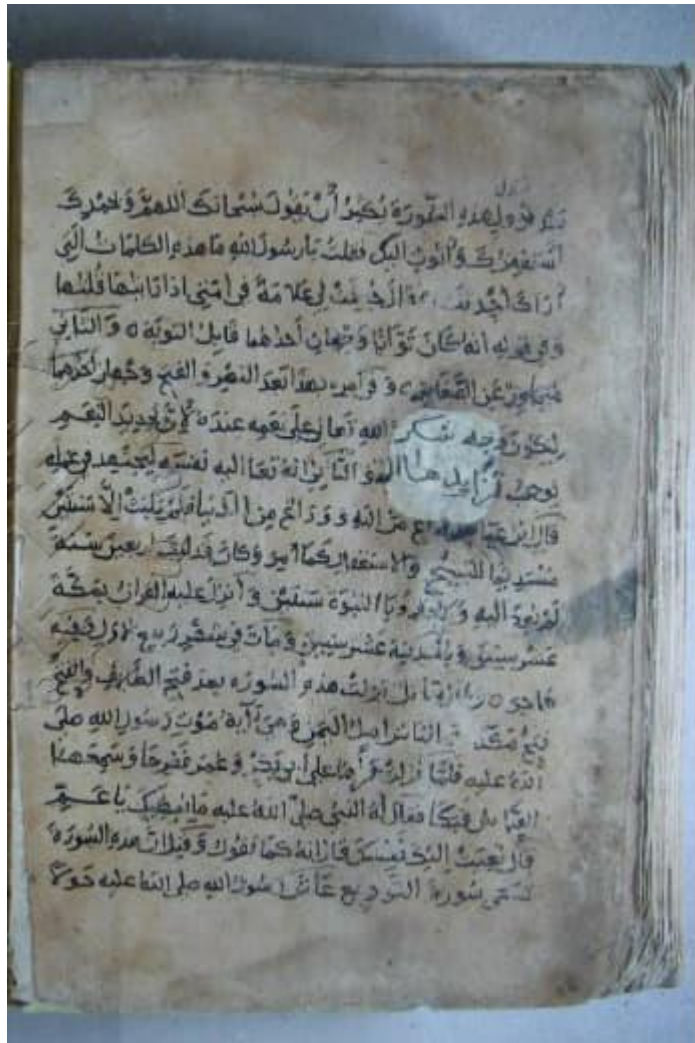 نزول هذه السورة يكثر أن يقول سبحانك اللهم وبحمدك
أستغفرك وأتوب اليك فقلت يا رسول الله ما هذه الكلمات التي
أراك أحدثتها جعلت لي علامة في أمتي اذا رأيتها قلتها
وفي قوله انه كان توابا وجهان أحدهما قابل التوبة والثاني
متجاوز عن وفي أمره بهذا بعد النصر والفتح وجهان أحدهما
ليكون شكر الله تعالى على نعمه عنده لان تجديد النعم
يوجب تزايدها والثاني انه نعا اليه نفسه ليجتهد في عمله
قال ابن عباس من الله ووداع من الدنيا فلم يلبث الا سنتين
مستديما للتسبيح والاستغفار كما أمر وكان قد أربعين سنة
لم يوح اليه ورأى رويا النبوة سنتين وأنزل عليه القران بمكة
عشر سنين وبالمدينة عشر سنين ومات في شهر ربيع الاول وفيه
هاجر مقاتل نزلت هذه السورة بعد فتح الطايف والفتح
فتح مكة الناس اهل اليمن وهي آية موت رسول الله صلى
الله عليه فلما نزلت قرأها على أبي بكر وعمر ففرحا وسمعها
العباس فبكا فقال له النبي صلى الله عليه ما يبكيك يا عم
قال نعيت اليك نفسك قال انه كما تقول وقيل ان هذه السورة
تسمى سورة التوديع عاش رسول الله صلى الله عليه حولا